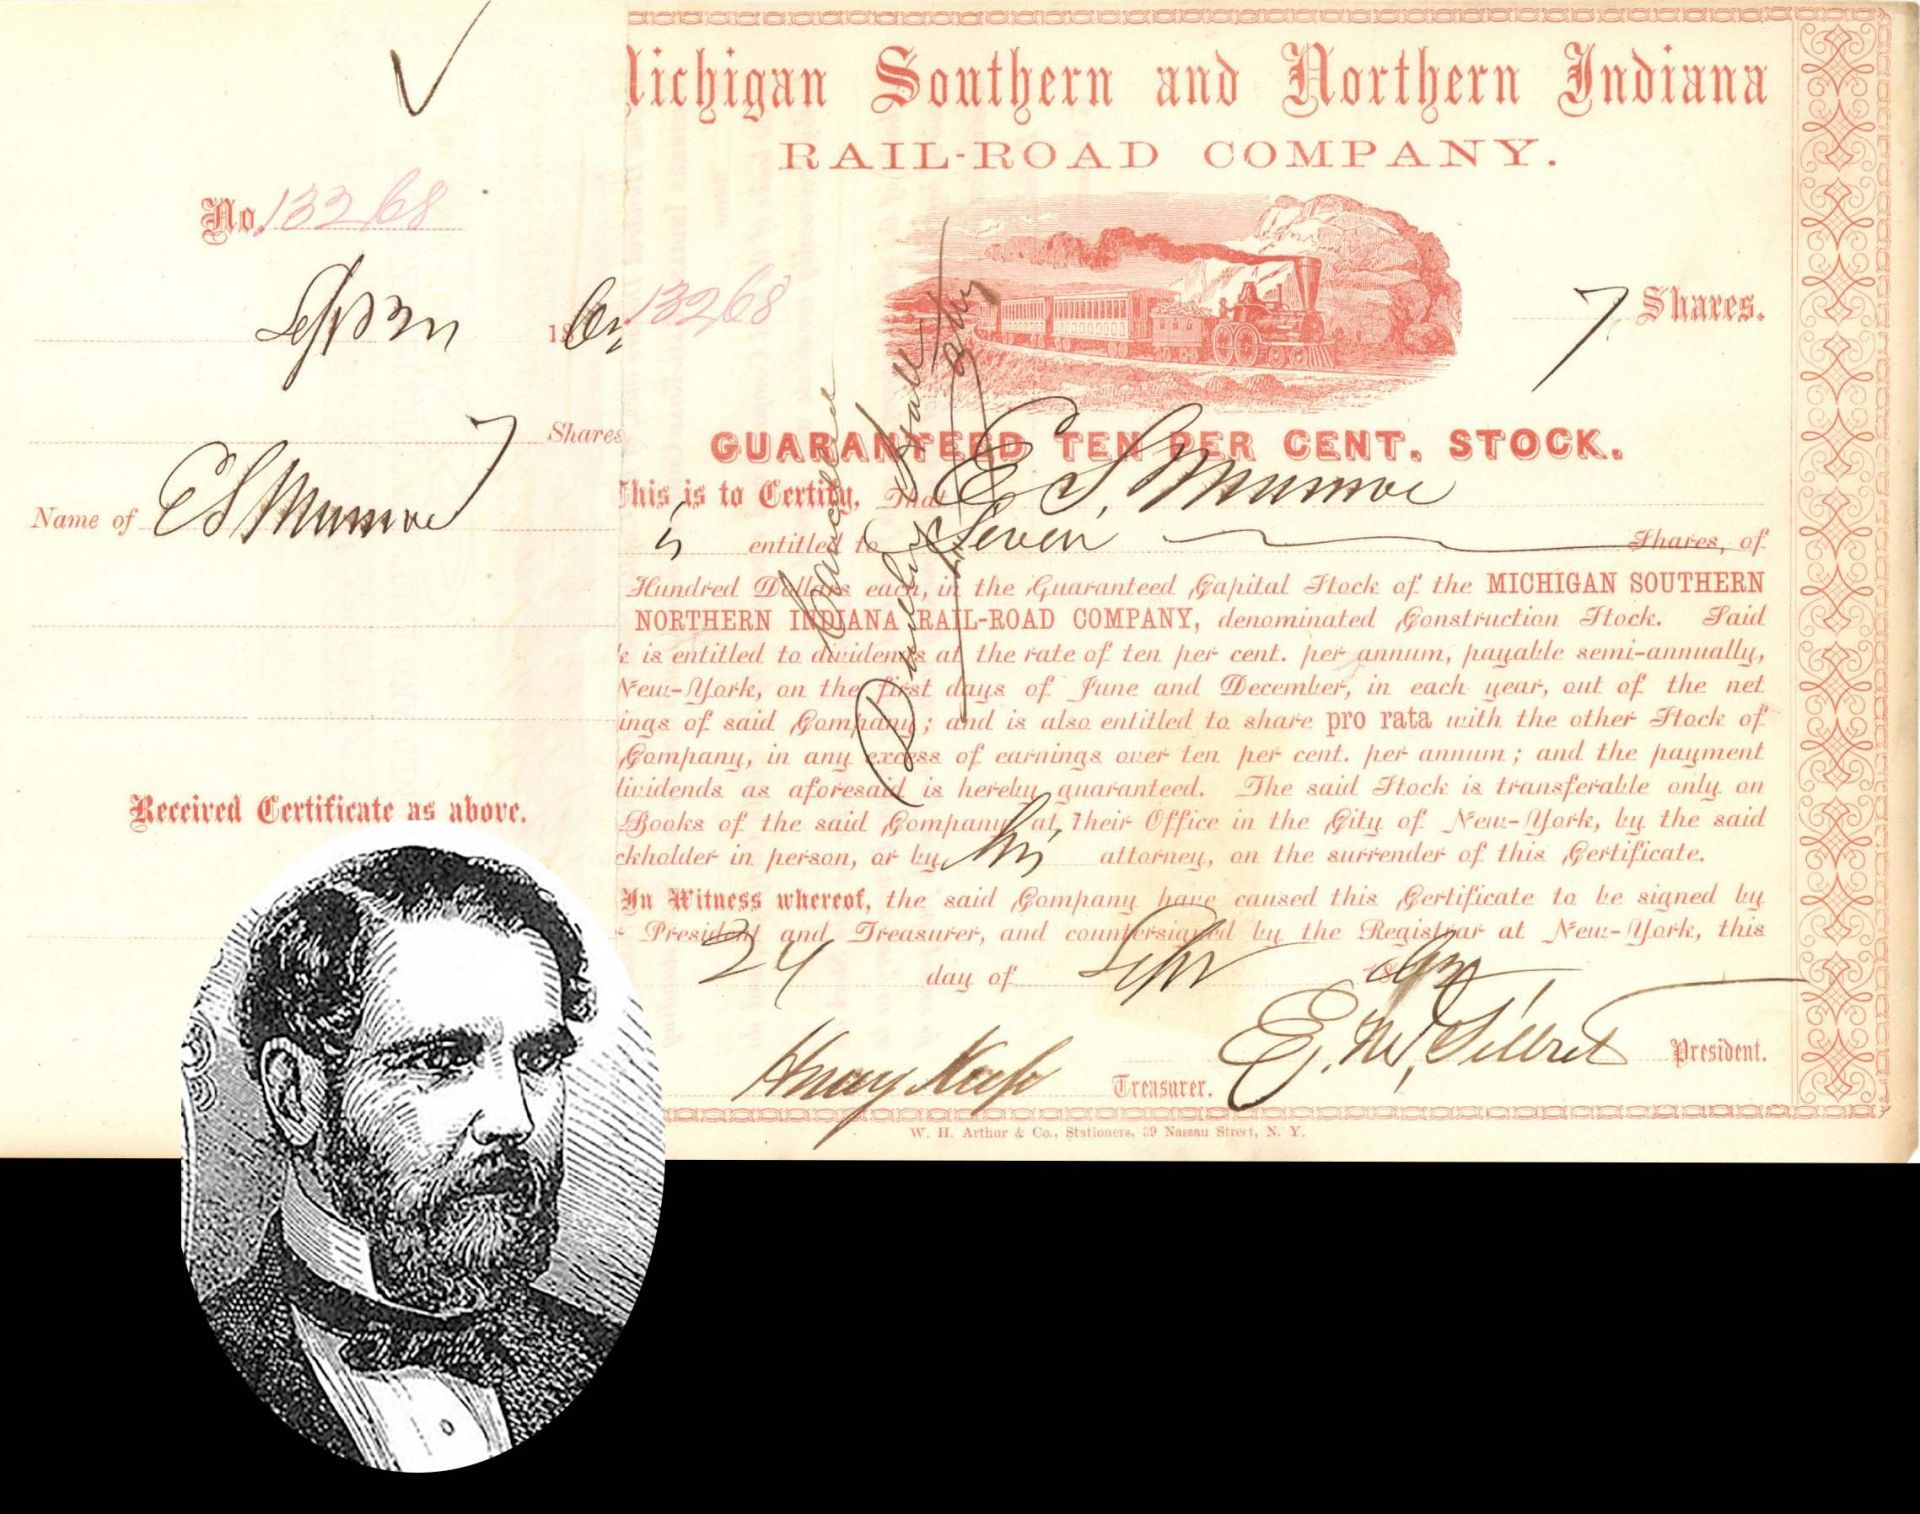 No. 13268
Sept 24 186
7 Shares
Name of E S Munroe
Received Certificate as above.
Michigan Southern and Northern Indiana
RAIL-ROAD COMPANY.
13268
7 Shares.
GUARANTEED TEN PER CENT. STOCK.
This is to Certify, That E. S. Munroe
is entitled to Seven Shares, of
Hundred Dollars each, in the Guaranteed Capital Stock of the MICHIGAN SOUTHERN
NORTHERN INDIANA RAIL-ROAD COMPANY, denominated Construction Stock. Said
is entitled to dividends at the rate of ten per cent. per annum, payable semi-annually,
New-York, on the first days of June and December, in each year, out of the net
ings of said Company; and is also entitled to share pro rata with the other Stock of
Company, in any excess of earnings over ten per cent. per annum; and the payment
dividends as aforesaid is hereby guaranteed. The said Stock is transferable only on
Books of the said Company at their Office in the City of New-York, by the said
ckholder in person, or by his attorney, on the surrender of this Certificate.
In Witness whereof, the said Company have caused this Certificate to be signed by
President and Treasurer, and countersigned by the Registrar at New-York, this
24 day of Sept 186
Henry Keep Treasurer. E. W. Gilbret President.
W. H. Arthur & Co., Stationers, 39 Nassau Street, N. Y.
Cancelled